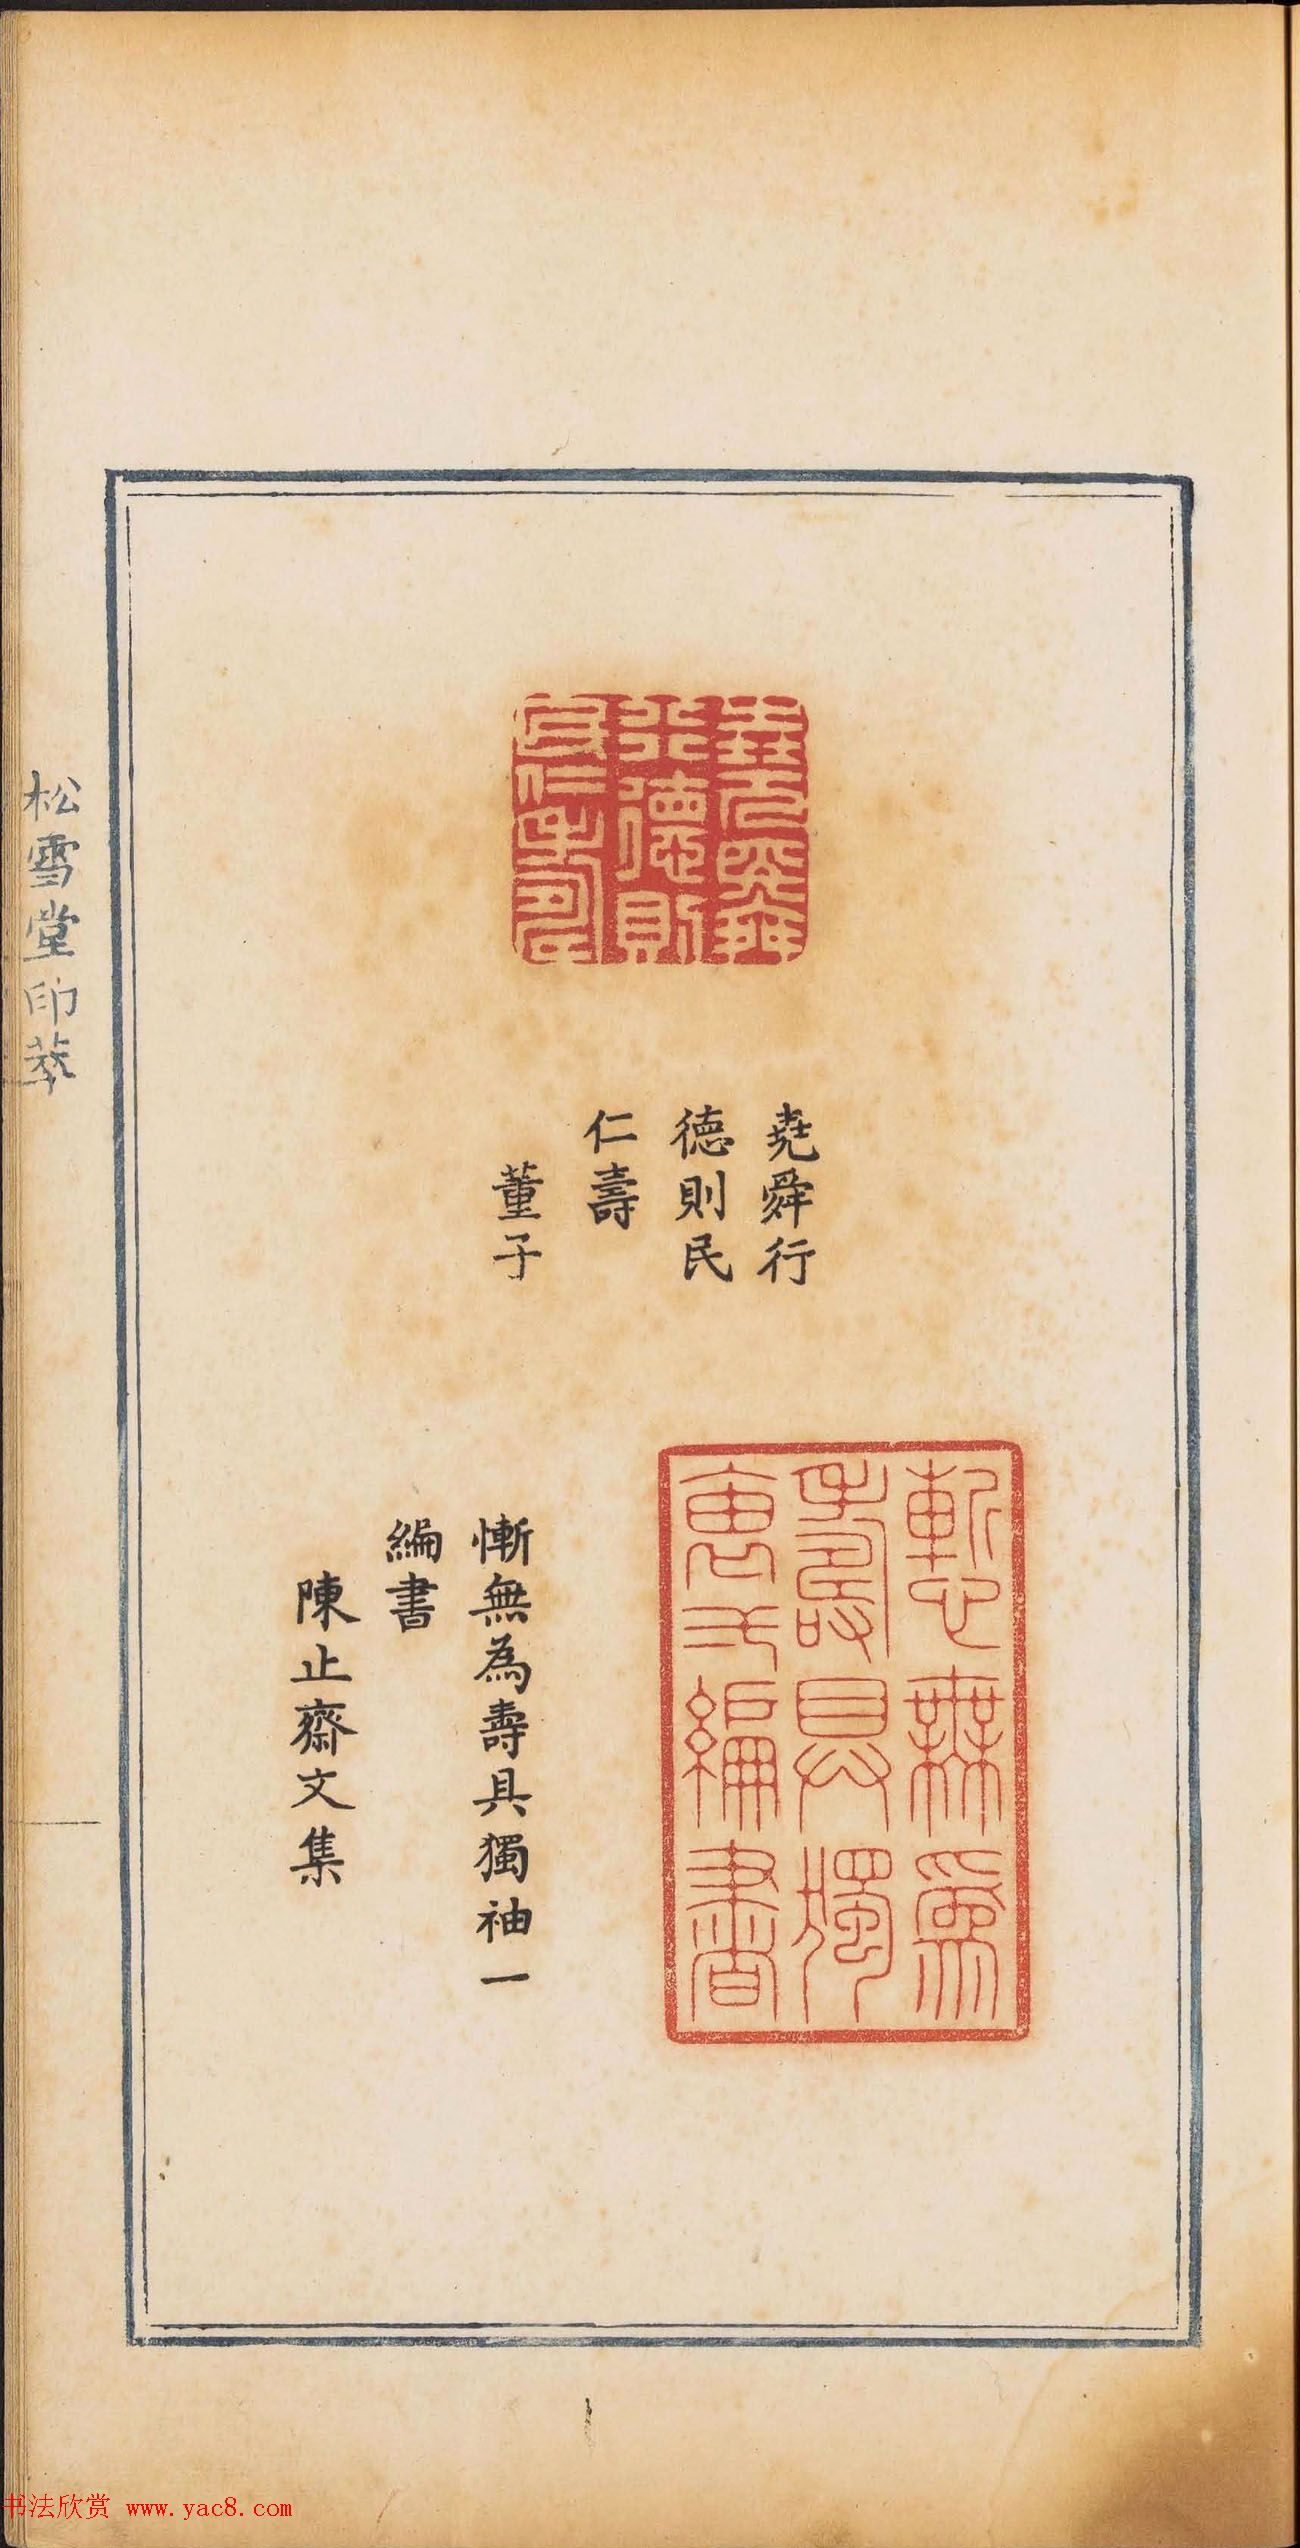 堯舜行德則民仁壽
堯舜行
德則民
仁壽
董子
慙無為壽具獨袖一編書
慚無為壽具獨袖一
編書
陳止齋文集
松雪堂印萃
书法欣赏 www.yac8.com